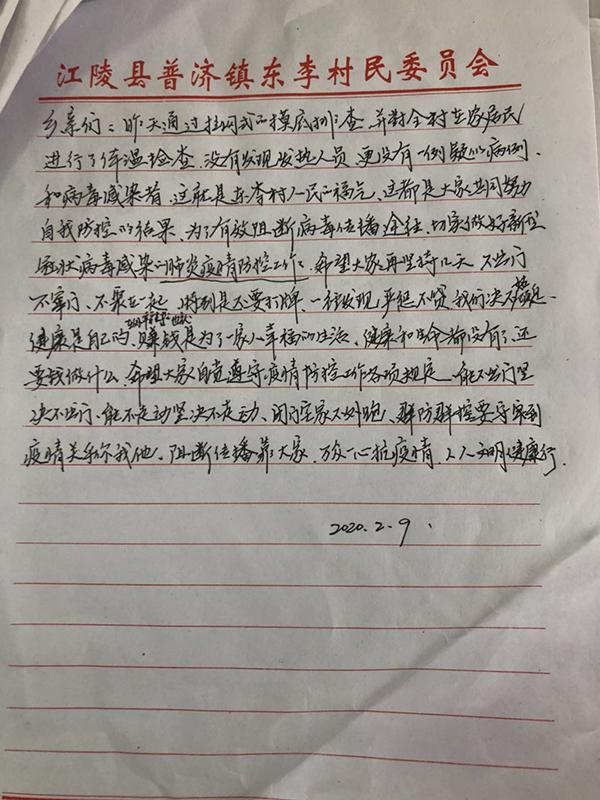 江陵县普济镇东李村民委员会
乡亲们：昨天通过挂网式的摸底排查，并对全村在家居民
进行了体温检查，没有发现发热人员，更没有一例疑似病例、
和病毒感染者，这就是东李村人民的福气，这都是大家共同努力
自我防控的结果、为了有效阻断病毒传播途径、切实做好新型
冠状病毒感染的肺炎疫情防控工作、希望大家再坚持几天 不出门
不窜门、不聚在一起 特别是不要打牌、一经发现 严惩不贷，我们决不
健康是自己的、赚钱是为了一家人幸福的生活、健康和生命都没有了、还
要钱做什么、希望大家自觉遵守疫情防控工作各项规定、能不出门坚
决不出门、能不走动坚决不走动、闭门在家不外跑、群防群控要守牢
疫情关系你我他、阻断传播靠大家、万众一心抗疫情、人人文明健康行.
2020.2.9.